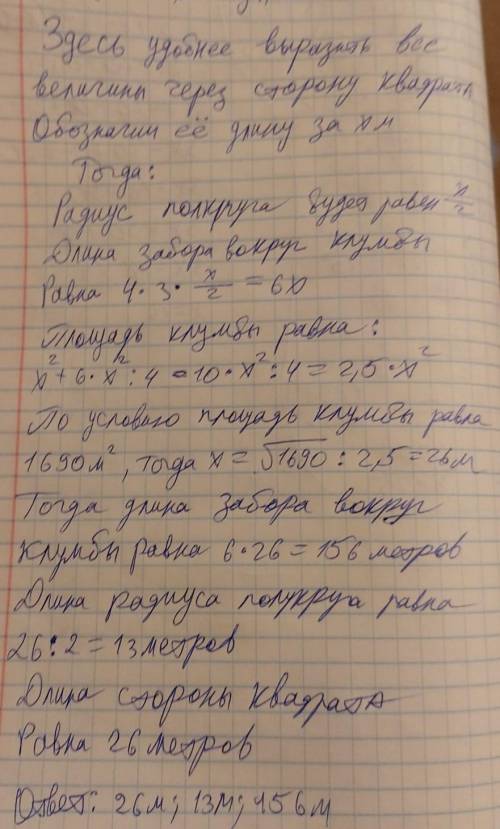 Здесь удобнее выразить все
величины через сторону квадрата
Обозначим её длину за x м
Тогда:
Радиус полкруга будет равен x/2
Длина забора вокруг клумбы
Равна 4·3·x/2=6x
Площадь клумбы равна:
x²+6·x²:4=10·x²:4=2,5·x²
По условию площадь клумбы равна
1690м², тогда x=√1690:2,5=26м
Тогда длина забора вокруг
Клумбы равна 6·26=156 метров
Длина радиуса полукруга равна
26:2=13метров
Длина стороны квадрата
Равна 26 метров
Ответ: 26м; 13м; 156м